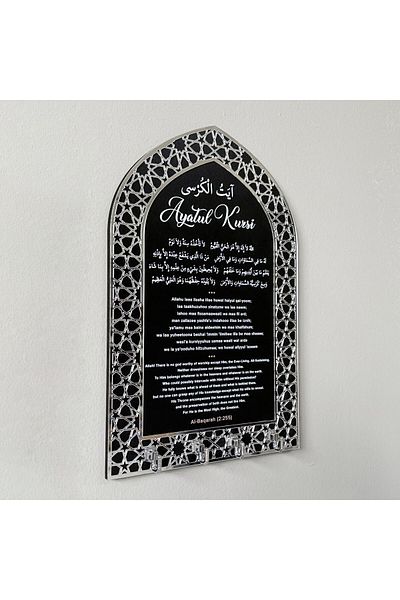 آيَتُ الْكُرْسِى
Ayatul Kursi
اللهُ لَا إِلٰهَ إِلَّا هُوَ الْحَيُّ الْقَيُّومُ لَا تَأْخُذُهُ سِنَةٌ وَلَا نَوْمٌ
لَهُ مَا فِي السَّمَاوَاتِ وَمَا فِي الْأَرْضِ مَنْ ذَا الَّذِي يَشْفَعُ عِنْدَهُ إِلَّا بِإِذْنِهِ
Allahu laaa ilaaha illaa huwal haiyul qai-yoom;
laa taakhuzuhoo sinatunw wa laa nawm;
lahoo maa fissamaawaati wa maa fil ard;
man zallazee yashfa'u indahooo illaa be iznih;
ya'lamu maa baina aideehim wa maa khalfahum;
wa laa yuheetoona beshai 'immin 'ilmihee illa be maa shaaaa;
wasi'a kursiyyuhus samaa waati wal arda
wa la ya'ooduho hifzuhumaa; wa huwal aliyyul 'azeem
Allah! There is no god worthy of worship except Him, the Ever-Living, All-Sustaining.
Neither drowsiness nor sleep overtakes Him.
To Him belongs whatever is in the heavens and whatever is on the earth.
Who could possibly intercede with Him without His permission?
He fully knows what is ahead of them and what is behind them,
but no one can grasp any of His knowledge except what He wills to reveal.
His Throne encompasses the heavens and the earth,
and the preservation of both does not tire Him.
For He is the Most High, the Greatest.
Al-Baqarah (2:255)